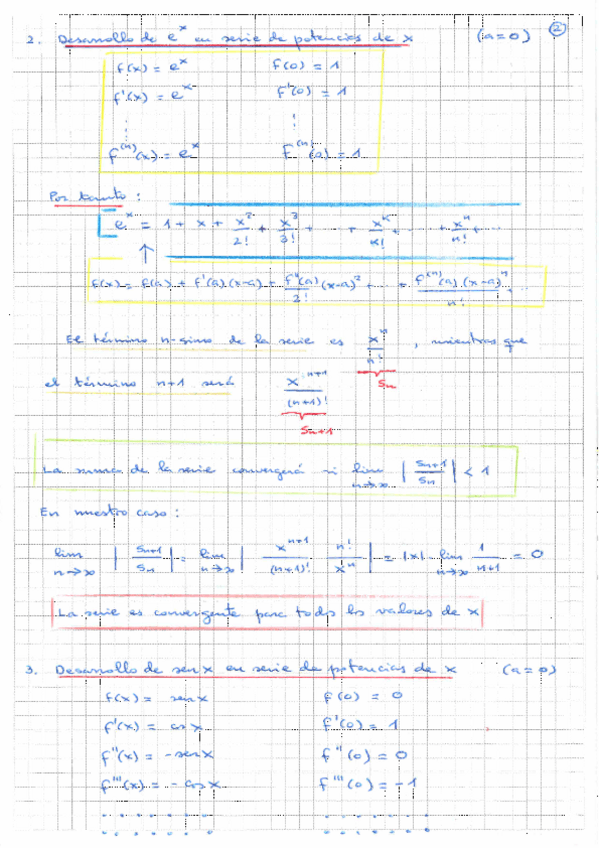 2. Desarrollo de e^x en serie de potencias de x (a=0) ②
f(x) = e^x f(0) = 1
f'(x) = e^x f'(0) = 1
⋮ ⋮
f^(n)(x) = e^x f^(n)(0) = 1
Por tanto :
e^x = 1 + x + x^2/2! + x^3/3! + ... + x^k/k! + ... + x^n/n! + ...
↑
f(x) = f(a) + f'(a).(x-a) + f''(a)/2! (x-a)^2 + ... = f^(n)(a).(x-a)^n/n! ...
El término n-simo de la serie es x^n/n! , mientras que
Sn
el término n+1 será x^(n+1)/(n+1)!
Sn+1
La suma de la serie convergerá si lim n→∞ | Sn+1/Sn | < 1
En nuestro caso :
lim n→∞ | Sn+1/Sn | = lim n→∞ | x^(n+1)/(n+1)! n!/x^n | = |x| lim n→∞ 1/(n+1) = 0
La serie es convergente para todos los valores de x
3. Desarrollo de sen x en serie de potencias de x (a=0)
f(x) = sen x f(0) = 0
f'(x) = cos x f'(0) = 1
f''(x) = -sen x f''(0) = 0
f'''(x) = -cos x f'''(0) = -1
. . . . . . . . . . . . . . . .